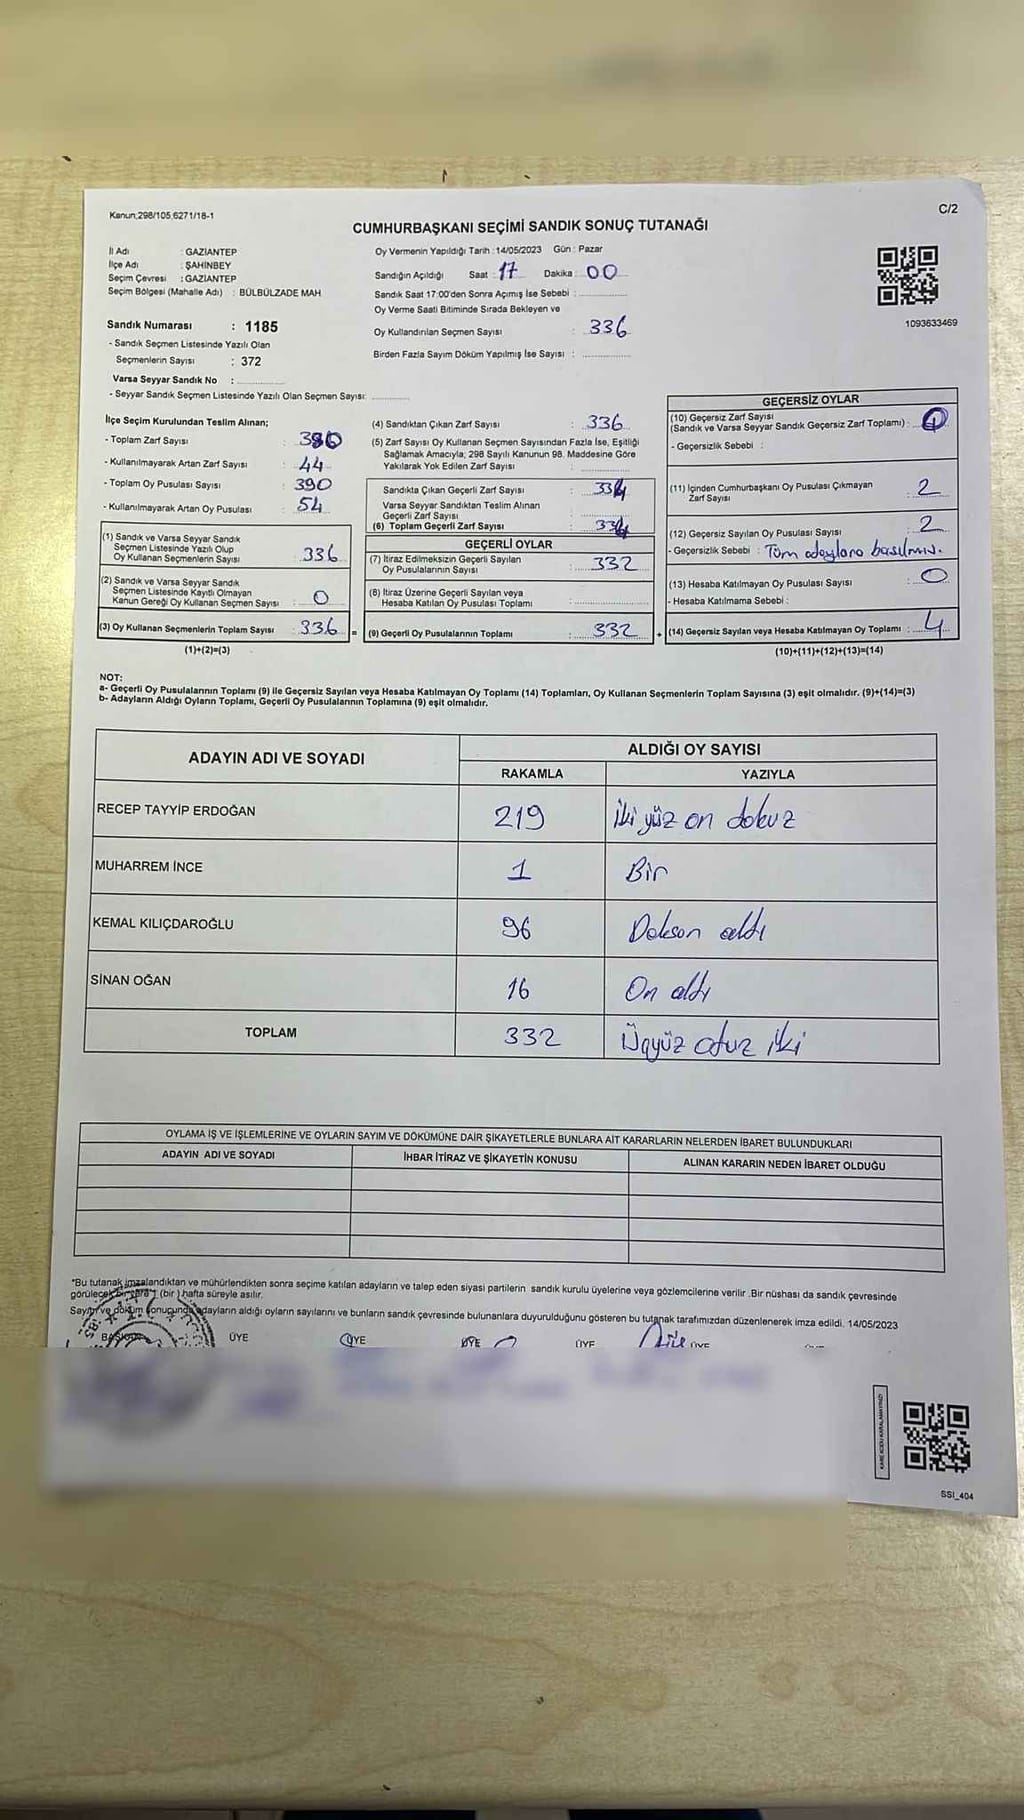 Kanun;298/105,6271/18-1
C/2
CUMHURBAŞKANI SEÇİMİ SANDIK SONUÇ TUTANAĞI
İl Adı : GAZİANTEP
İlçe Adı : ŞAHİNBEY
Seçim Çevresi : GAZİANTEP
Seçim Bölgesi (Mahalle Adı) : BÜLBÜLZADE MAH
Oy Vermenin Yapıldığı Tarih : 14/05/2023 Gün : Pazar
Sandığın Açıldığı Saat : 17 Dakika : 00
Sandık Saat 17:00'den Sonra Açımış İse Sebebi :
Oy Verme Saati Bitiminde Sırada Bekleyen ve
Oy Kullandırılan Seçmen Sayısı : 336
Birden Fazla Sayım Döküm Yapılmış İse Sayısı :
1093633469
Sandık Numarası : 1185
- Sandık Seçmen Listesinde Yazılı Olan
Seçmenlerin Sayısı : 372
Varsa Seyyar Sandık No :
- Seyyar Sandık Seçmen Listesinde Yazılı Olan Seçmen Sayısı:
İlçe Seçim Kurulundan Teslim Alınan;
- Toplam Zarf Sayısı :
- Kullanılmayarak Artan Zarf Sayısı : 44
- Toplam Oy Pusulası Sayısı : 390
- Kullanılmayarak Artan Oy Pusulası : 54
(1) Sandık ve Varsa Seyyar Sandık
Seçmen Listesinde Yazılı Olup
Oy Kullanan Seçmenlerin Sayısı : 336
(2) Sandık ve Varsa Seyyar Sandık
Seçmen Listesinde Kayıtlı Olmayan
Kanun Gereği Oy Kullanan Seçmen Sayısı : 0
(3) Oy Kullanan Seçmenlerin Toplam Sayısı : 336 =
(1)+(2)=(3)
(4) Sandıktan Çıkan Zarf Sayısı : 336
(5) Zarf Sayısı Oy Kullanan Seçmen Sayısından Fazla İse, Eşitliği
Sağlamak Amacıyla; 298 Sayılı Kanunun 98. Maddesine Göre
Yakılarak Yok Edilen Zarf Sayısı :
Sandıkta Çıkan Geçerli Zarf Sayısı : 334
Varsa Seyyar Sandıktan Teslim Alınan
Geçerli Zarf Sayısı :
(6) Toplam Geçerli Zarf Sayısı : 334
GEÇERLİ OYLAR
(7) İtiraz Edilmeksizin Geçerli Sayılan
Oy Pusulalarının Sayısı : 332
(8) İtiraz Üzerine Geçerli Sayılan veya
Hesaba Katılan Oy Pusulası Toplamı :
(9) Geçerli Oy Pusulalarının Toplamı : 332 +
GEÇERSİZ OYLAR
(10) Geçersiz Zarf Sayısı
(Sandık ve Varsa Seyyar Sandık Geçersiz Zarf Toplamı) :
- Geçersizlik Sebebi :
(11) İçinden Cumhurbaşkanı Oy Pusulası Çıkmayan
Zarf Sayısı : 2
(12) Geçersiz Sayılan Oy Pusulası Sayısı : 2
- Geçersizlik Sebebi : Tüm adaylara basılmış.
(13) Hesaba Katılmayan Oy Pusulası Sayısı : 0
- Hesaba Katılmama Sebebi :
(14) Geçersiz Sayılan veya Hesaba Katılmayan Oy Toplamı : 4
(10)+(11)+(12)+(13)=(14)
NOT:
a- Geçerli Oy Pusulalarının Toplamı (9) ile Geçersiz Sayılan veya Hesaba Katılmayan Oy Toplamı (14) Toplamları, Oy Kullanan Seçmenlerin Toplam Sayısına (3) eşit olmalıdır. (9)+(14)=(3)
b- Adayların Aldığı Oyların Toplamı, Geçerli Oy Pusulalarının Toplamına (9) eşit olmalıdır.
ADAYIN ADI VE SOYADI
ALDIĞI OY SAYISI
RAKAMLA YAZIYLA
RECEP TAYYİP ERDOĞAN 219 İki yüz on dokuz
MUHARREM İNCE 1 Bir
KEMAL KILIÇDAROĞLU 96 Doksan altı
SİNAN OĞAN 16 On altı
TOPLAM 332 Üçyüz otuz iki
OYLAMA İŞ VE İŞLEMLERİNE VE OYLARIN SAYIM VE DÖKÜMÜNE DAİR ŞİKAYETLERLE BUNLARA AİT KARARLARIN NELERDEN İBARET BULUNDUKLARI
ADAYIN ADI VE SOYADI İHBAR İTİRAZ VE ŞİKAYETİN KONUSU ALINAN KARARIN NEDEN İBARET OLDUĞU
*Bu tutanak imzalandıktan ve mühürlendikten sonra seçime katılan adayların ve talep eden siyasi partilerin sandık kurulu üyelerine veya gözlemcilerine verilir .Bir nüshası da sandık çevresinde
görülecek bir yere 1 (bir) hafta süreyle asılır.
Sayım ve döküm sonucunda adayların aldığı oyların sayılarını ve bunların sandık çevresinde bulunanlara duyurulduğunu gösteren bu tutanak tarafımızdan düzenlenerek imza edildi. 14/05/2023
BAŞKAN ÜYE ÜYE ÜYE ÜYE ÜYE
SSI_404